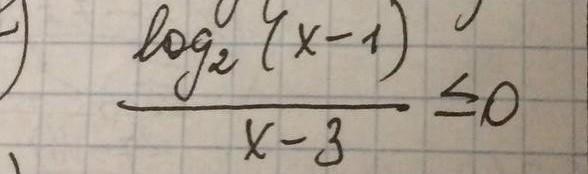 log₂(x-1)
x-3
≤0